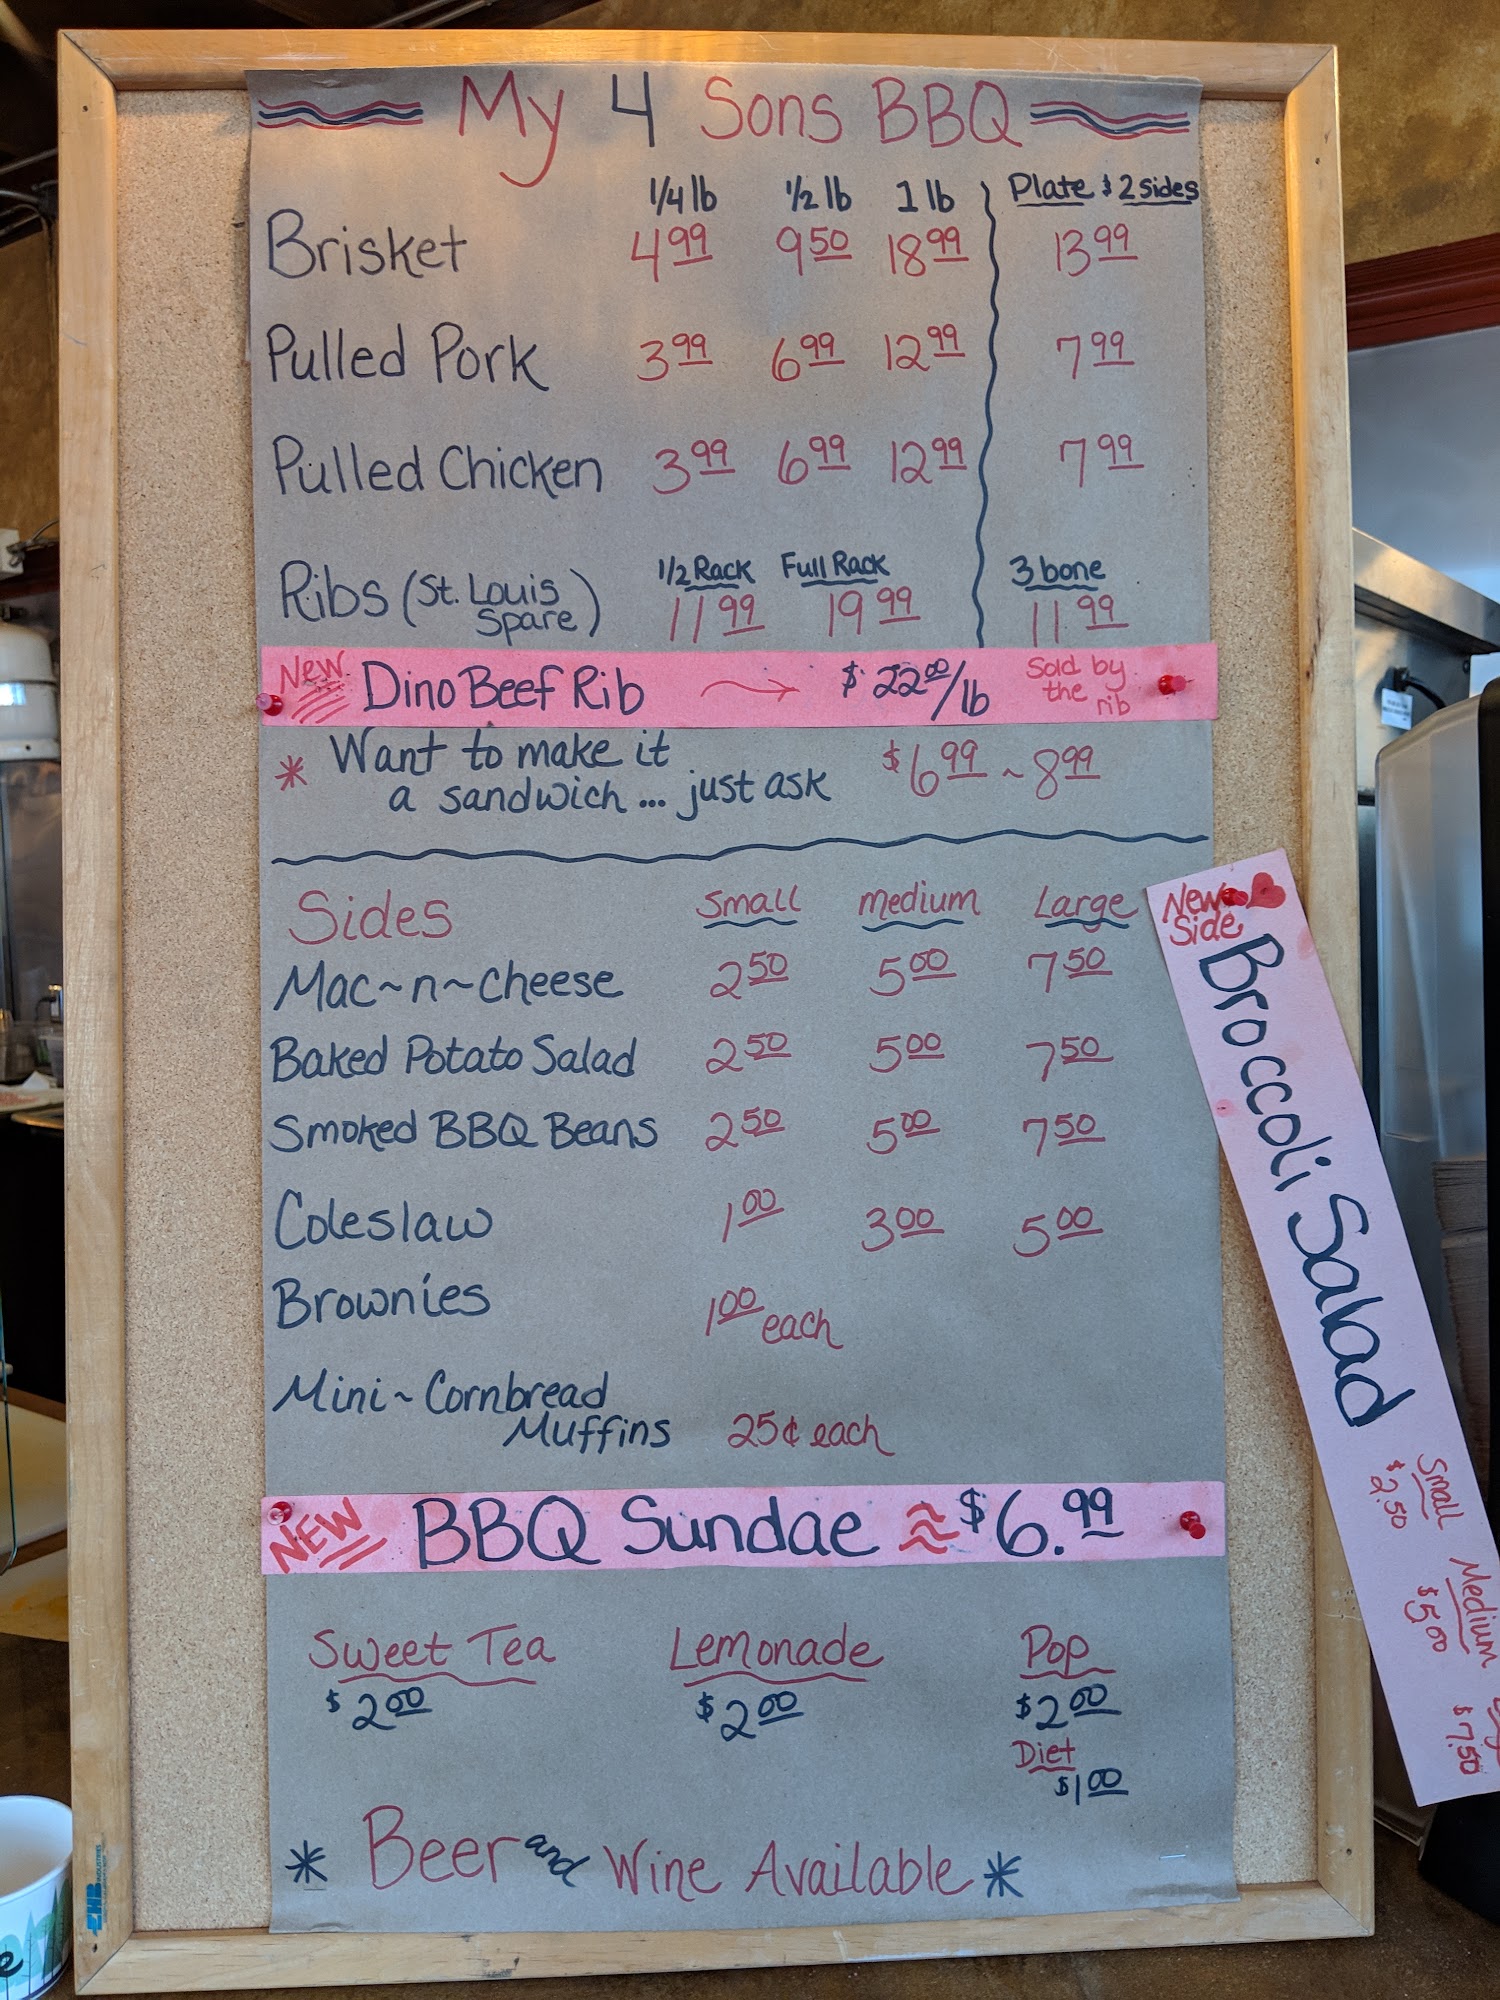 My 4 Sons BBQ
1/4 lb 1/2 lb 1 lb Plate & 2 sides
Brisket 4 99 9 50 18 99 13 99
Pulled Pork 3 99 6 99 12 99 7 99
Pulled Chicken 3 99 6 99 12 99 7 99
1/2 Rack Full Rack 3 bone
Ribs (St. Louis Spare) 11 99 19 99 11 99
New Dino Beef Rib → $22 00/lb Sold by the rib
* Want to make it
a sandwich... just ask $6 99 ~ 8 99
Sides Small Medium Large
Mac~n~Cheese 2 50 5 00 7 50
Baked Potato Salad 2 50 5 00 7 50
Smoked BBQ Beans 2 50 5 00 7 50
Coleslaw 1 00 3 00 5 00
Brownies 1 00 each
Mini~Cornbread
Muffins 25¢ each
NEW BBQ Sundae $6.99
Sweet Tea Lemonade Pop
$2 00 $2 00 $2 00
Diet
$1 00
* Beer and Wine Available *
New Side
Broccoli Salad
Small
$2.50
Medium
$5 00
$7.50
EHB